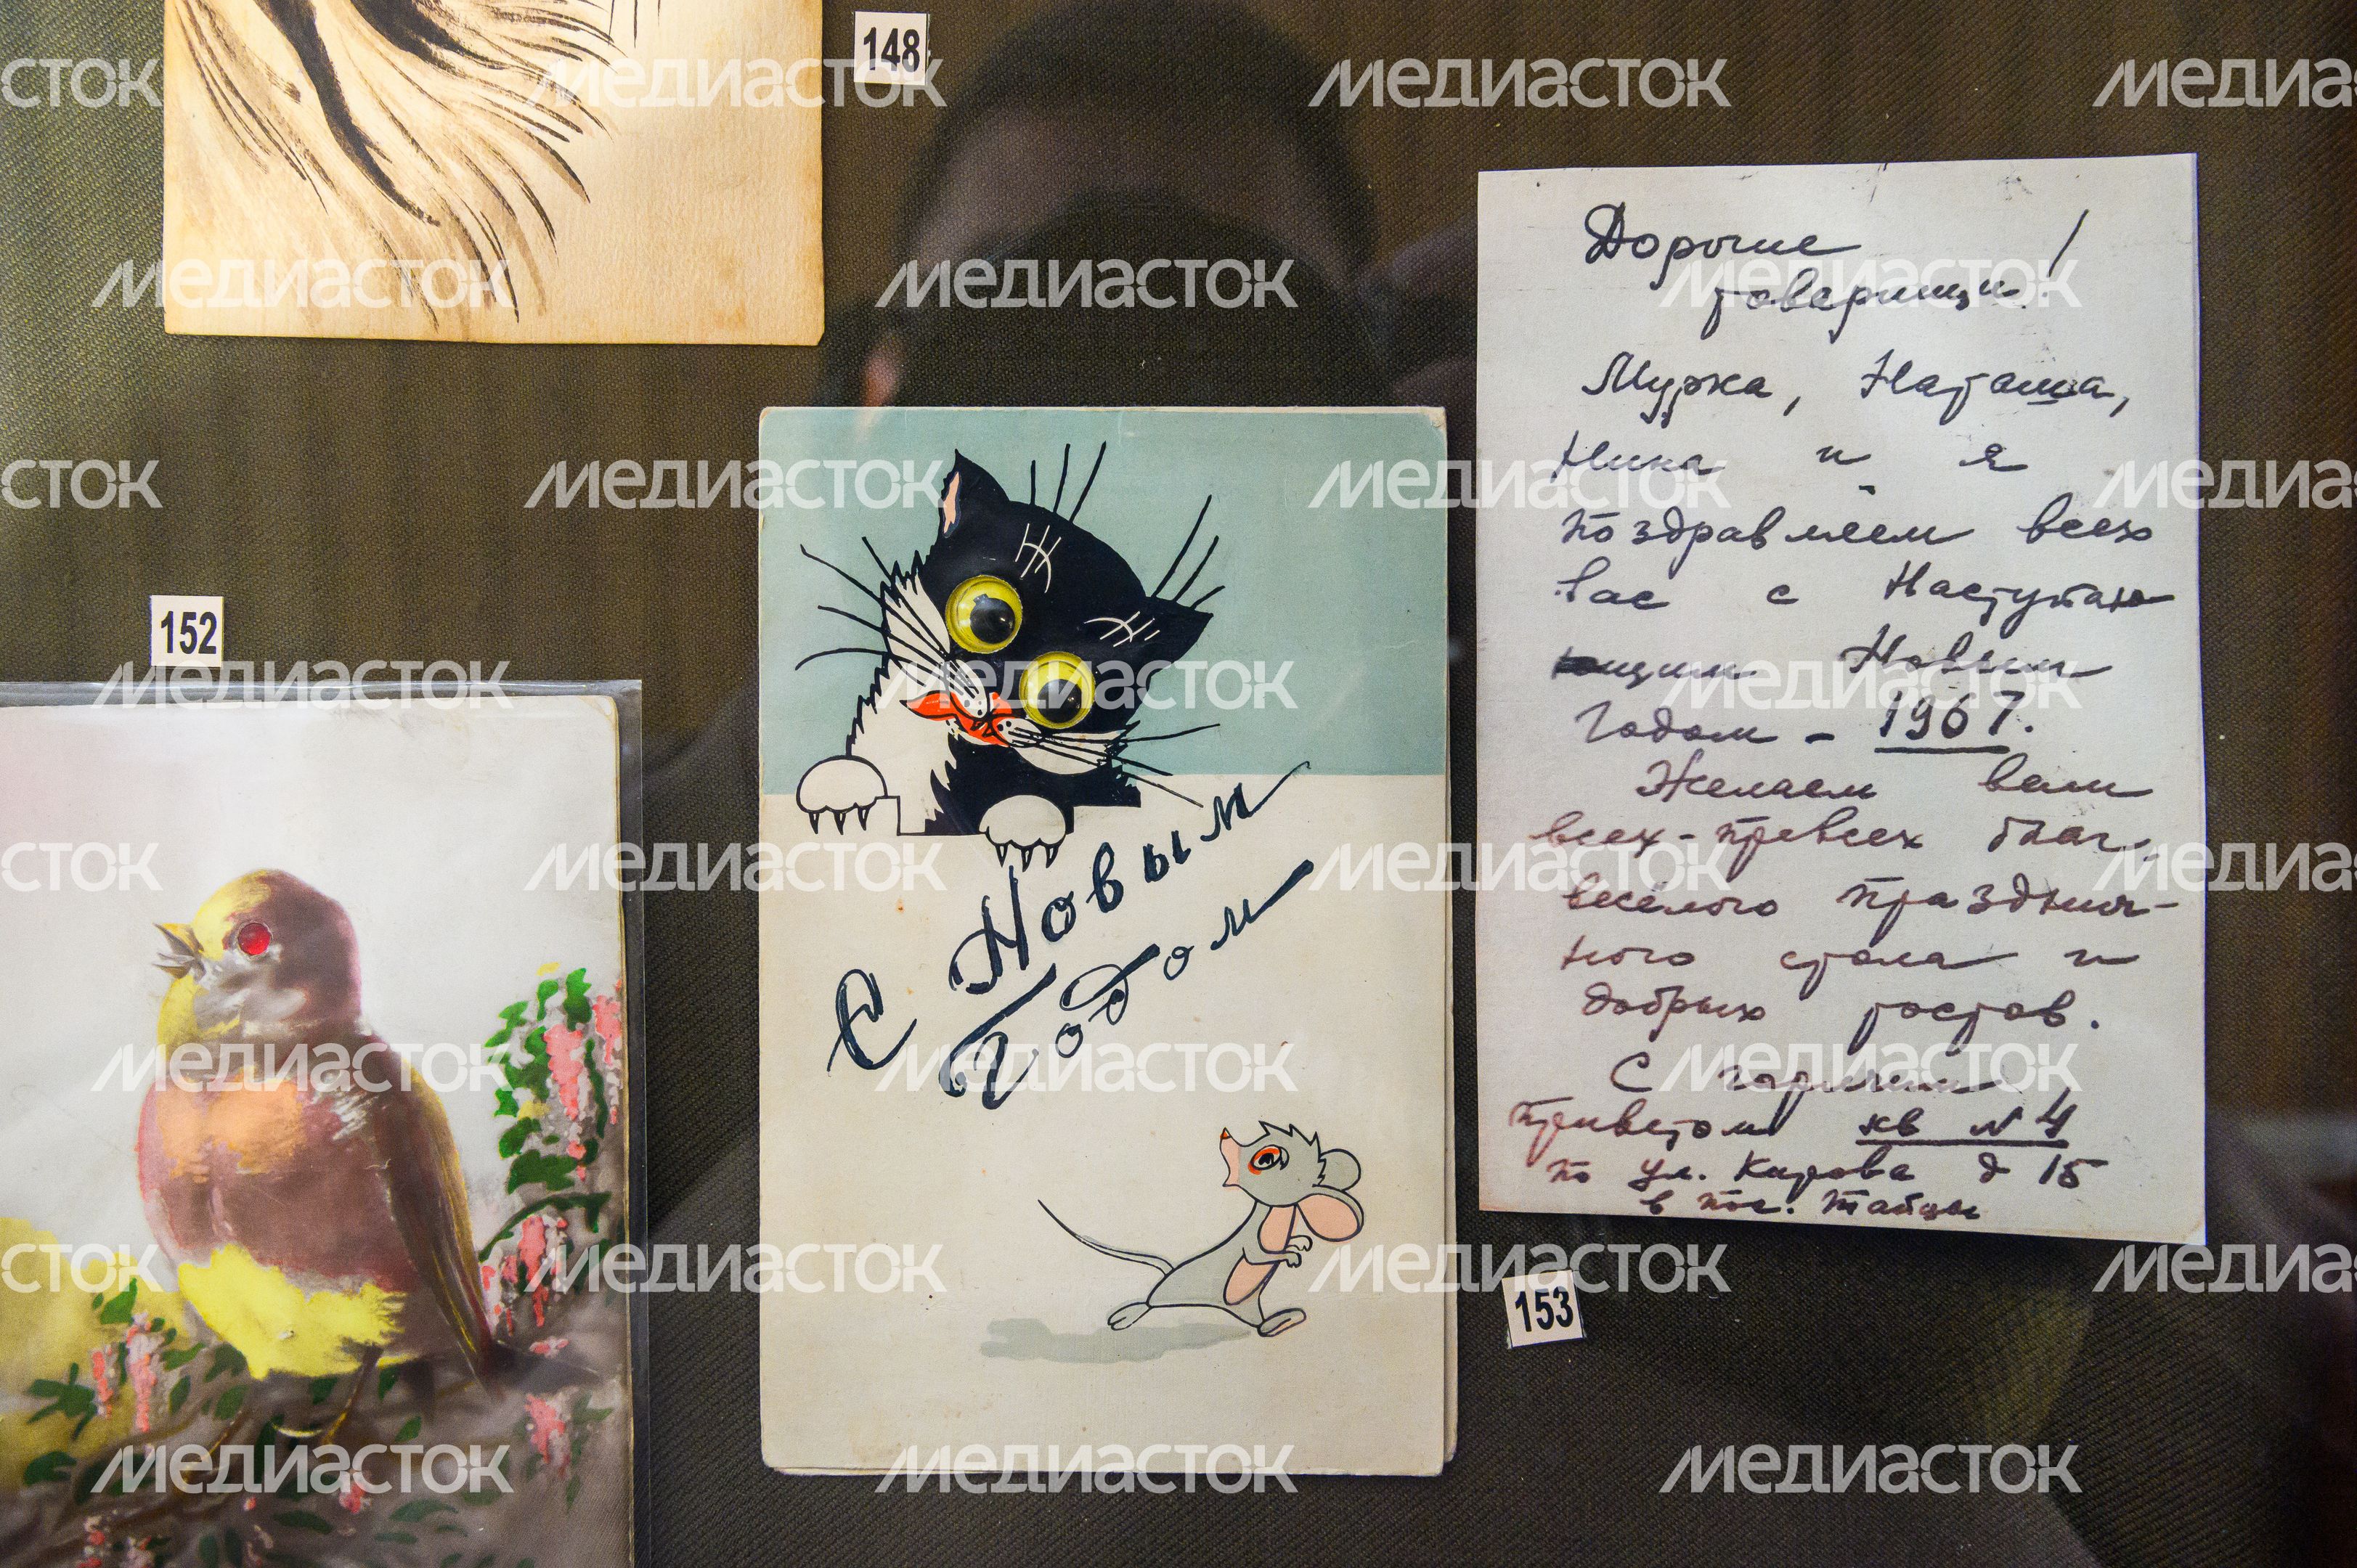 148
152
С Новым
Годом
Дорогие
товарищи!
Мурка, Наташа,
Ника и я
поздравляем всех
вас с Наступаю
ющим Новым
Годом - 1967.
Желаем вам
всех-превсех благ,
весёлого празднич-
ного стола и
добрых тостов.
С горячим
приветом кв №4
по ул. Кирова д 15
в пос. Тайцы
153
МЕДИАСТОК